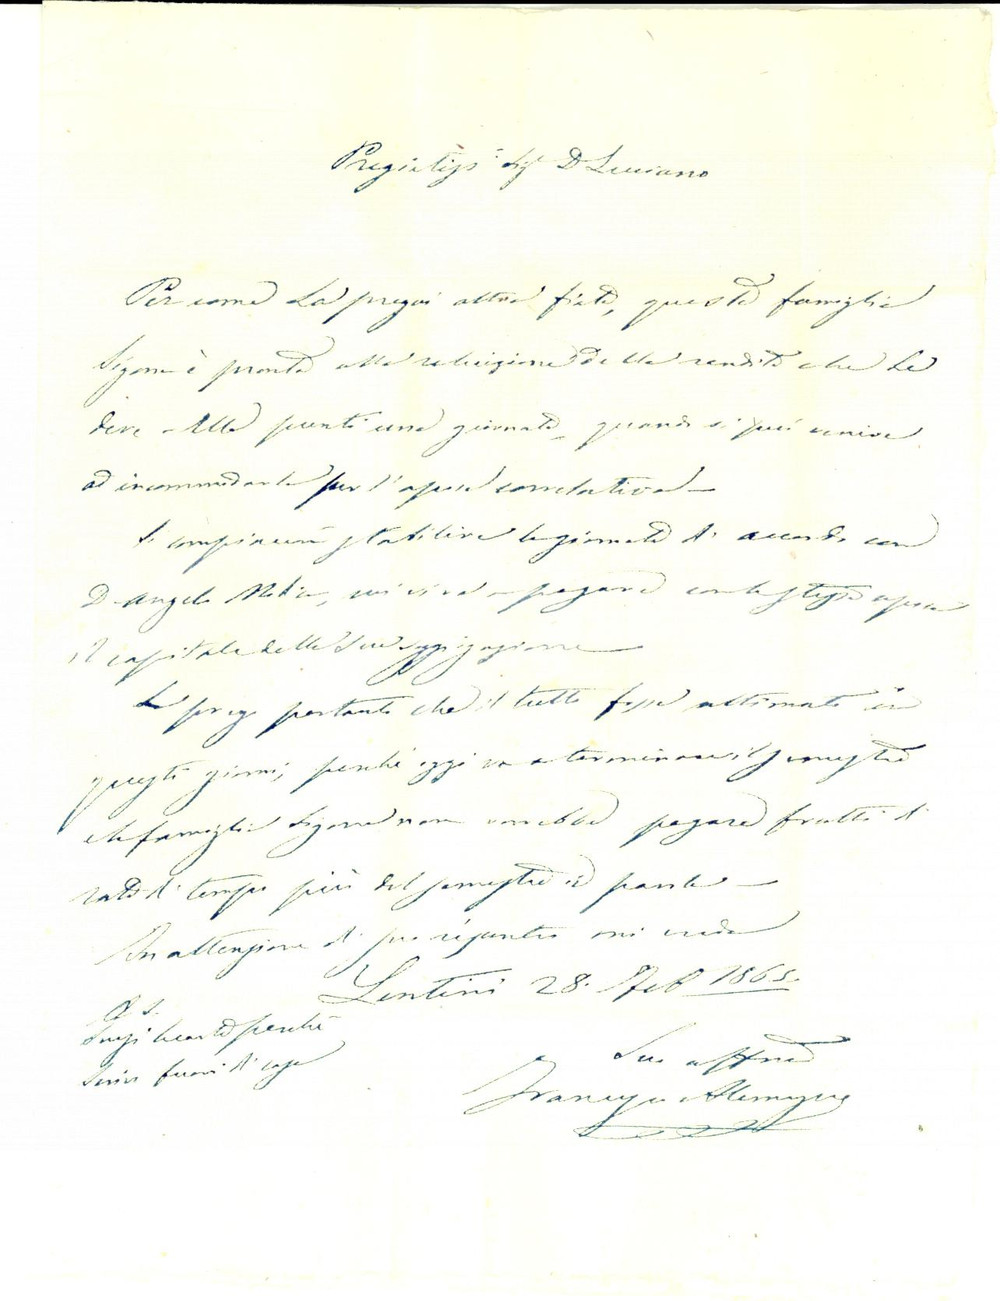 Pregiatiss.º Sig.r D Luciano
Per come La pregai altra fiata, questa famiglia
Sigona è pronta alla reluizione della rendita che Le
deve. Alla punti una giornata, quando si può venire
ad incommodarla per l'apoca correlativa —
Si compiaccia stabilire la giornata di accordo con
D. Angelo, cui si va a pagare con la stessa apoca
il capitale della Sua soggiogazione —
La prego pertanto che il tutto fosse ultimato in
questi giorni, perchè oggi va a terminare il semestre
e la famiglia Sigona non vorrebbe pagare frutti di
rata di tempo più del semestre che parla —
In attenzione di suo riscontro mi creda
Lentini 28. Feb 1865.
Suo affmo
Francesco Alemagna
P. S.
Scusi la carta perchè
scrivo fuori di casa